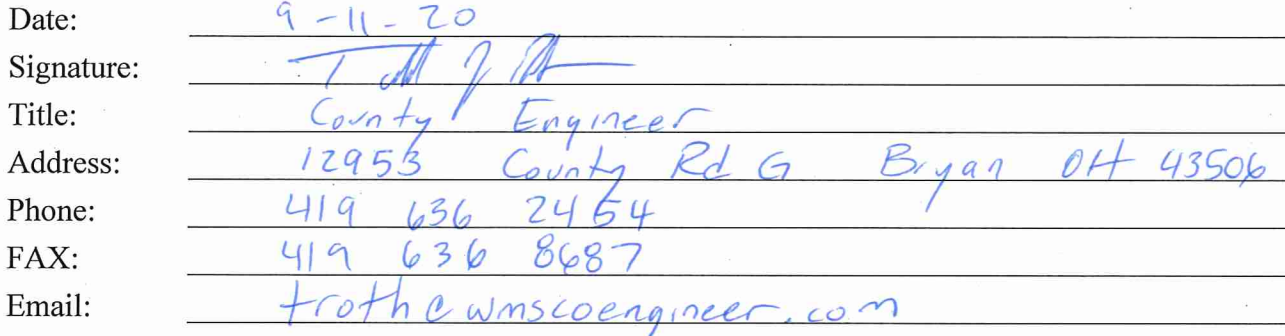 Date: 9-11-20
Signature:
Title: County Engineer
Address: 12953 County Rd G Bryan OH 43506
Phone: 419 636 2454
FAX: 419 636 8687
Email: troth@wmscoengineer.com